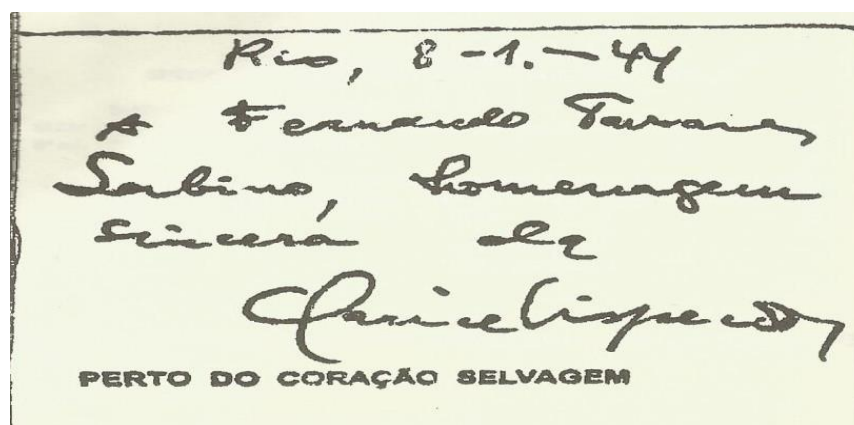 Rio, 8-1.-44
A Fernando Tavares
Sabino, homenagem
sincera da
Clarice Lispector
PERTO DO CORAÇÃO SELVAGEM